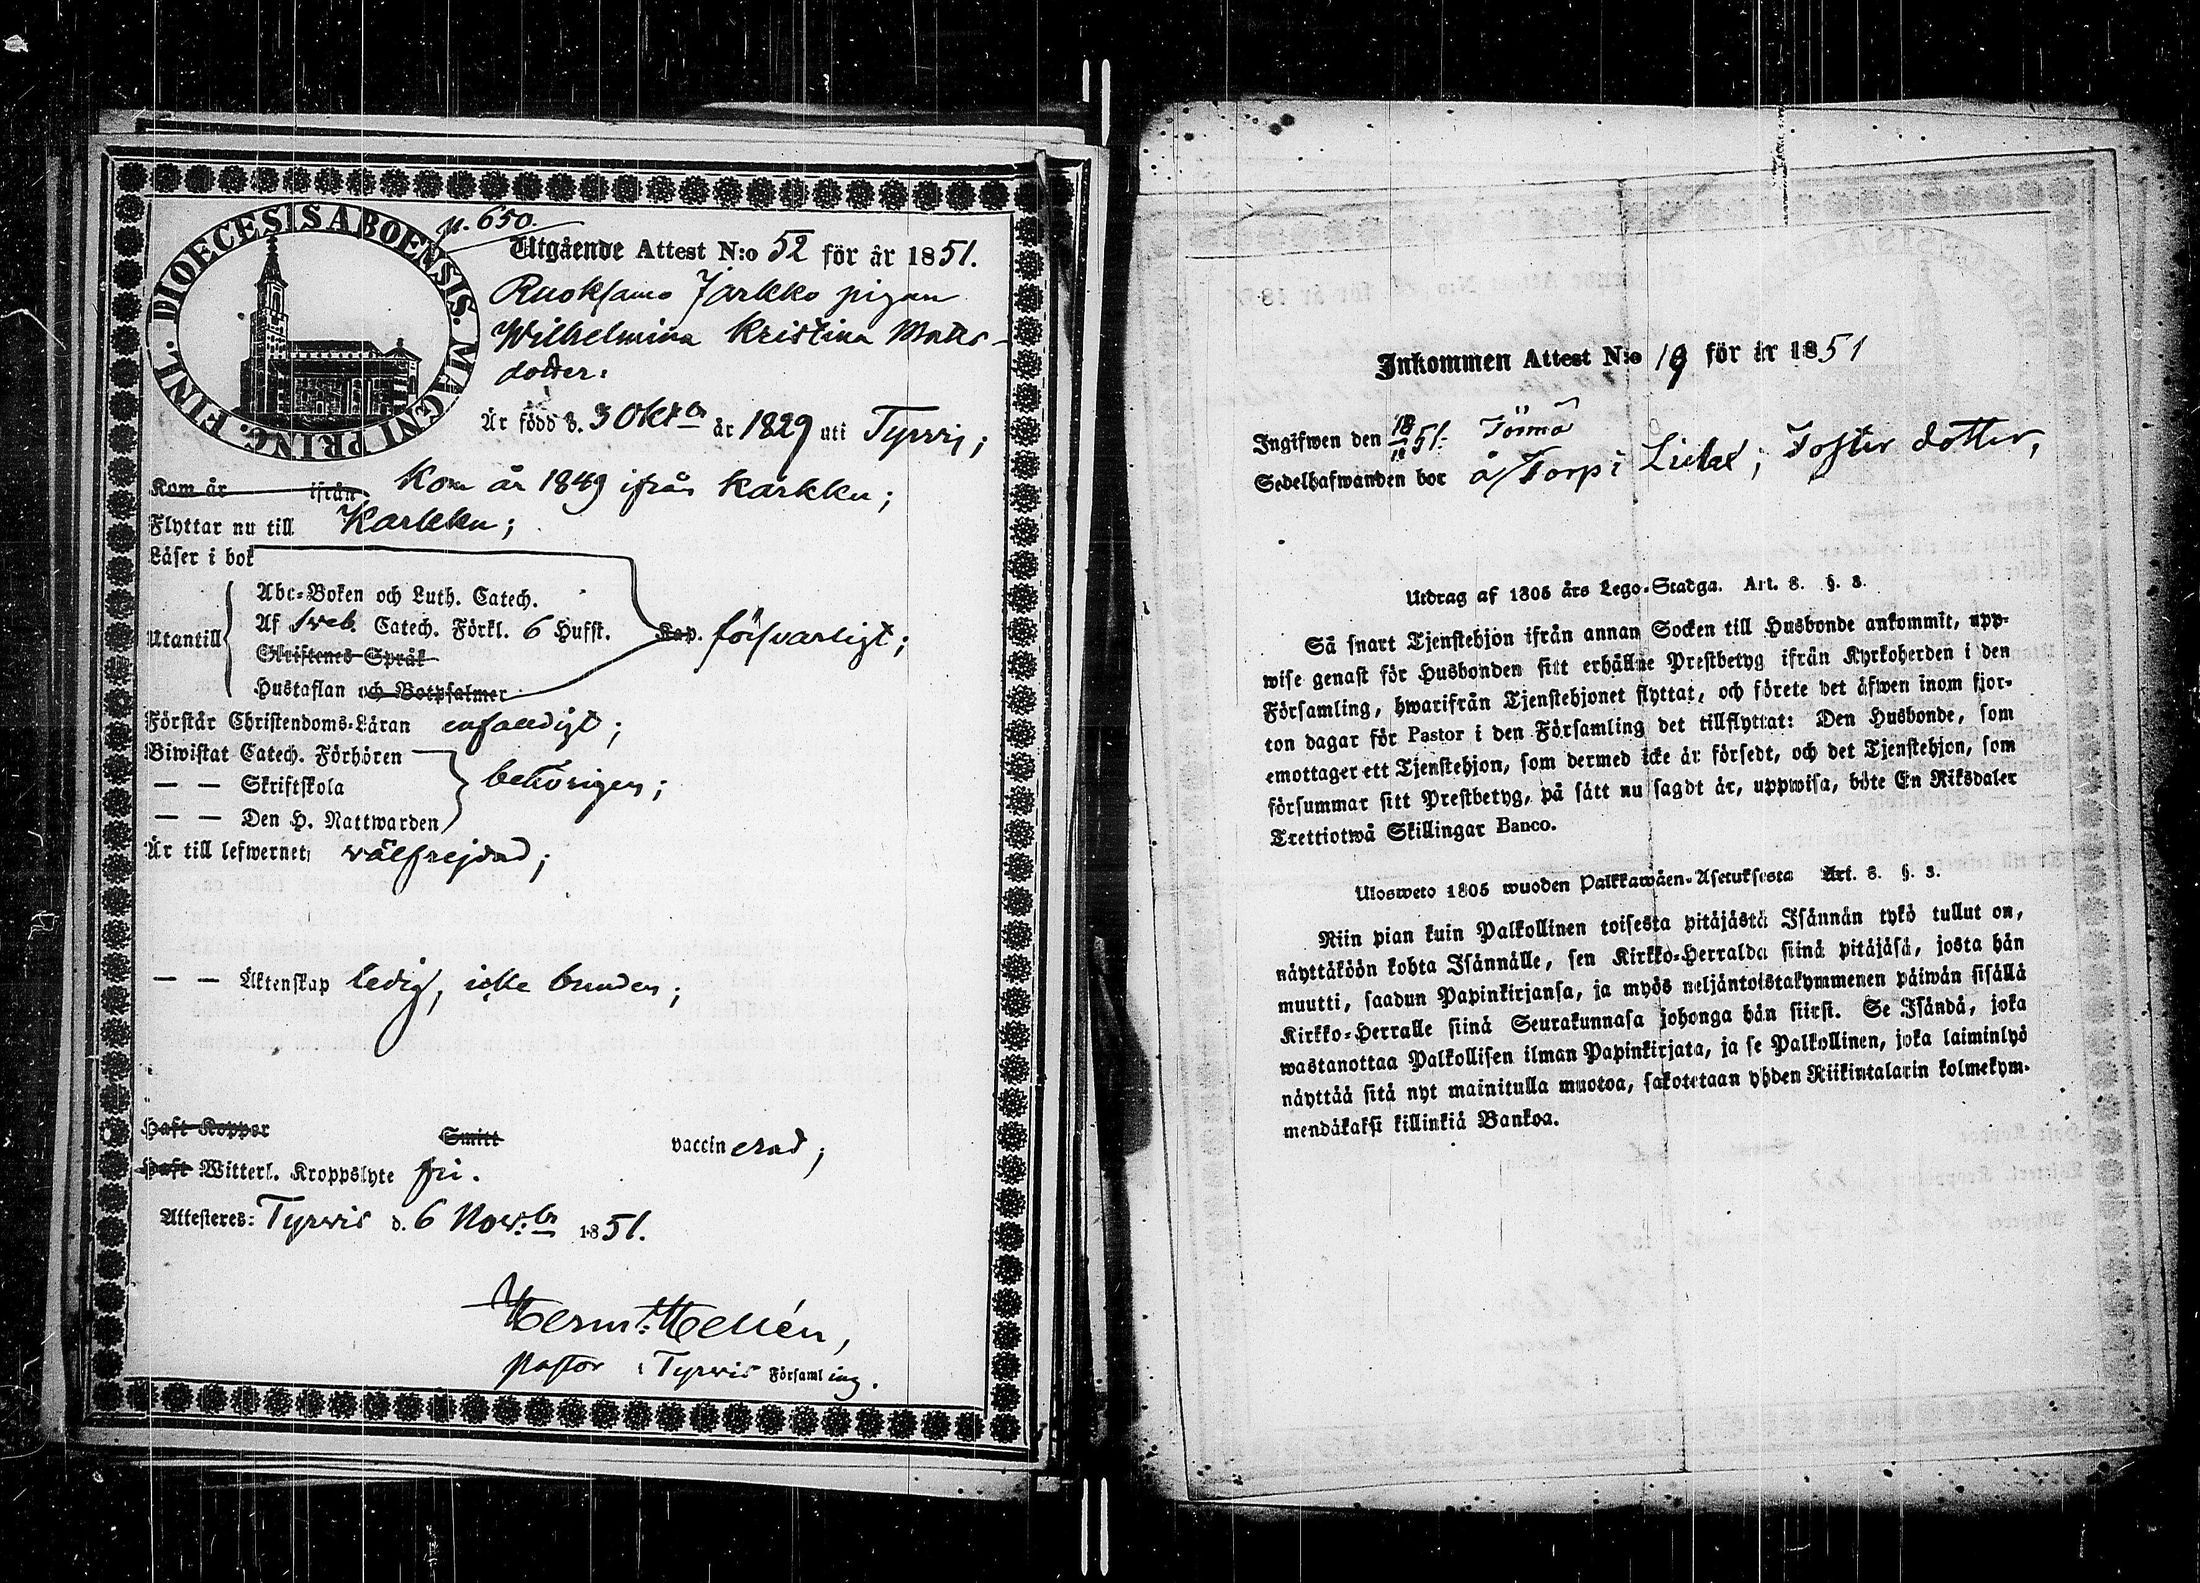 p. 650.
DIOECESIS ABOENSIS. MAGNI PRINC. FINL.
Utgående Attest N:o 52 för år 1851.
Ruoksamo Jarkko pigan
Wilhelmina Kristina Mats-
dotter.
Är född d. 3 Oktbr år 1829 uti Tyrvis;
Kom år ifrån Kom år 1849 ifrån Karkku;
Flyttar nu till Karkku;
Läser i bok
Abc-Boken och Luth. Catech.
Utantill Af Sveb. Catech. Förkl. 6 Hufst. Kap. försvarligt;
Skriftenes Språk
Hustaflan och Botpsalmer
Förstår Christendoms-Läran enfaldigt;
Biwistat Catech. Förhören
— — Skriftskola behörigen;
— — Den H. Nattwarden
Är till lefwernet wälfrejdad;
— — Äktenskap ledig, icke bunden;
Haft Koppor Smitt vaccinerad;
Haft Witterl. Kroppslyte fri.
Attesteres: Tyrvis d. 6 Nov:br 1851.
Herm: Hellén,
Pastor i Tyrvis Församling.
Inkommen Attest N:o 19 för år 1851
Ingifwen den 18/11 51.
Sedelhafwanden bor å Torp i ; Foster dotter,
Utdrag af 1805 års Lego-Stadga. Art. 8. §. 3.
Så snart Tjenstehjon ifrån annan Socken till Husbonde ankommit, upp-
wise genast för Husbonden sitt erhållne Prestbetyg ifrån Kyrkoherden i den
Församling, hwarifrån Tjenstehjonet flyttat, och förete det äfwen inom fjor-
ton dagar för Pastor i den Församling det tillflyttat: Den Husbonde, som
emottager ett Tjenstehjon, som dermed icke är försedt, och det Tjenstehjon, som
försummar sitt Prestbetyg, på sätt nu sagdt är, uppwisa, böte En Riksdaler
Trettiotwå Skillingar Banco.
Ulosweto 1805 wuoden Palkkawäen-Asetuksesta Art. 8. §. 3.
Niin pian kuin Palkollinen toisesta pitäjästä Isännän tykö tullut on,
näyttäköön kohta Isännälle, sen Kirkko-Herralda siinä pitäjäsä, josta hän
muutti, saadun Papinkirjansa, ja myös neljäntoistakymmenen päiwän sisällä
Kirkko-Herralle siinä Seurakunnasa johonga hän siirsi. Se Isändä, joka
wastanottaa Palkollisen ilman Papinkirjata, ja se Palkollinen, joka laiminlyö
näyttää sitä nyt mainitulla muotoa, sakotetaan yhden Riikintalarin kolmekym-
mendäkaksi killinkiä Bankoa.